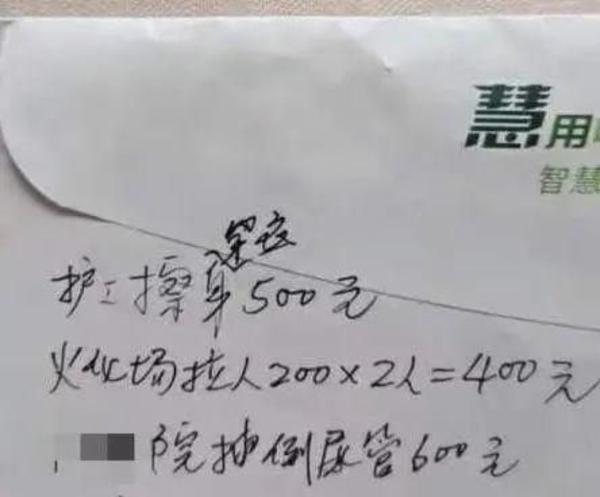 慧用
智慧
深夜
护工擦身500元
火化场拉人200×2人=400元
院抽倒尿管600元